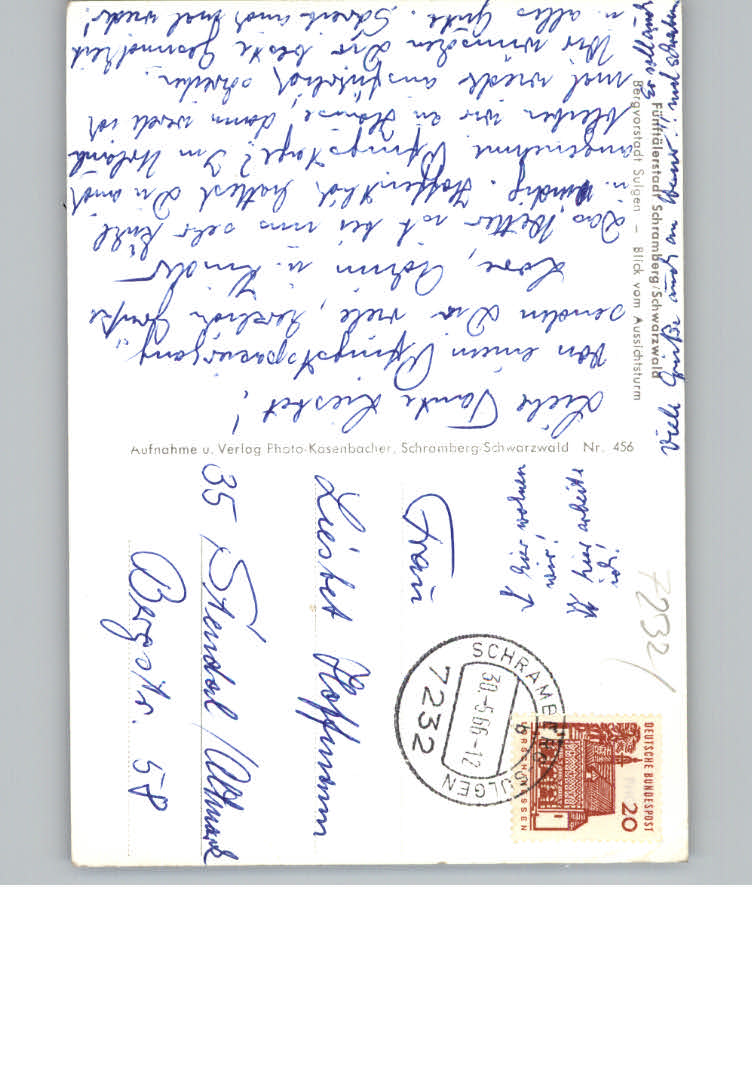 Fünftälerstadt Schramberg/Schwarzwald
Bergvorstadt Sulgen – Blick vom Aussichtsturm
Liebe Tante Liesbet!
Von einem Pfingstspaziergang
senden Dir viele, herzliche Grüße
Lore, Achim u. Kinder
Das Wetter ist bei uns sehr kühl
u. windig. Hoffentlich hattest Du auch
angenehme Pfingsttage? Im Urlaub
bleiben wir zu Hause, dann werde ich
mal wieder ausführlich schreiben.
Wir wünschen Dir beste Gesundheit
u. alles Gute. Schreib auch mal wieder!
Viele Grüße auch an
Aufnahme u. Verlag Photo-Kasenbacher, Schramberg-Schwarzwald Nr. 456
↑ hier wohnen
wir!
⇈ hier arbeite
ich!
7232/
SCHRAMBERG
SULGEN
b
30.-5.66-12
7232
DEUTSCHE BUNDESPOST
20
LORSCH/HESSEN
Frau
Liesbet Hoffmann
35 Stendal/Altmark
Bergstr. 58